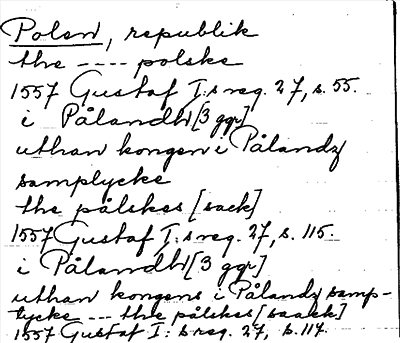 Polen, republik
the ---- polske
1557 Gustaf I:s reg. 27, s. 55.
i Pålandh [3 ggr]
uthan kongen i Pålandz
samplycke
the pålskes [sack]
1557 Gustaf I:s reg. 27, s. 115.
i Pålandh [3 ggr]
uthan kongens i Pålandz samp-
tycke --- the pålskes [saack]
1557 Gustaf I: s reg. 27, s. 117.